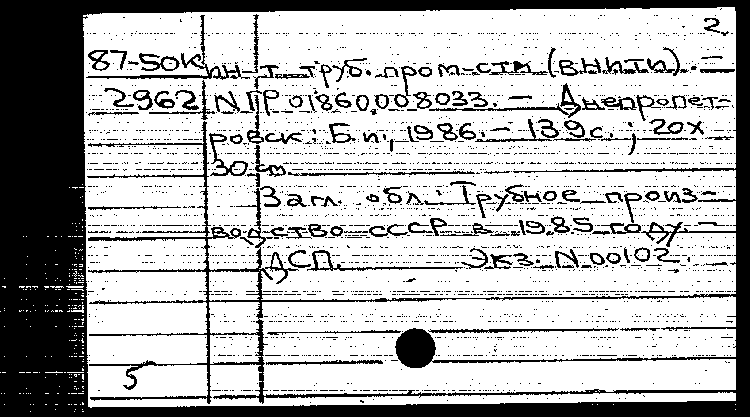 2.
87-50К ин-т труб. пром-сти (ВНИТИ). –
2962 N ГР 01860.008033. – Днепропет-
ровск: Б.и., 1986. – 139 с. ; 20х
30 см.
Загл. обл.: Трубное произ-
водство СССР в 1985 году. –
ДСП. Экз. N 00102.
5